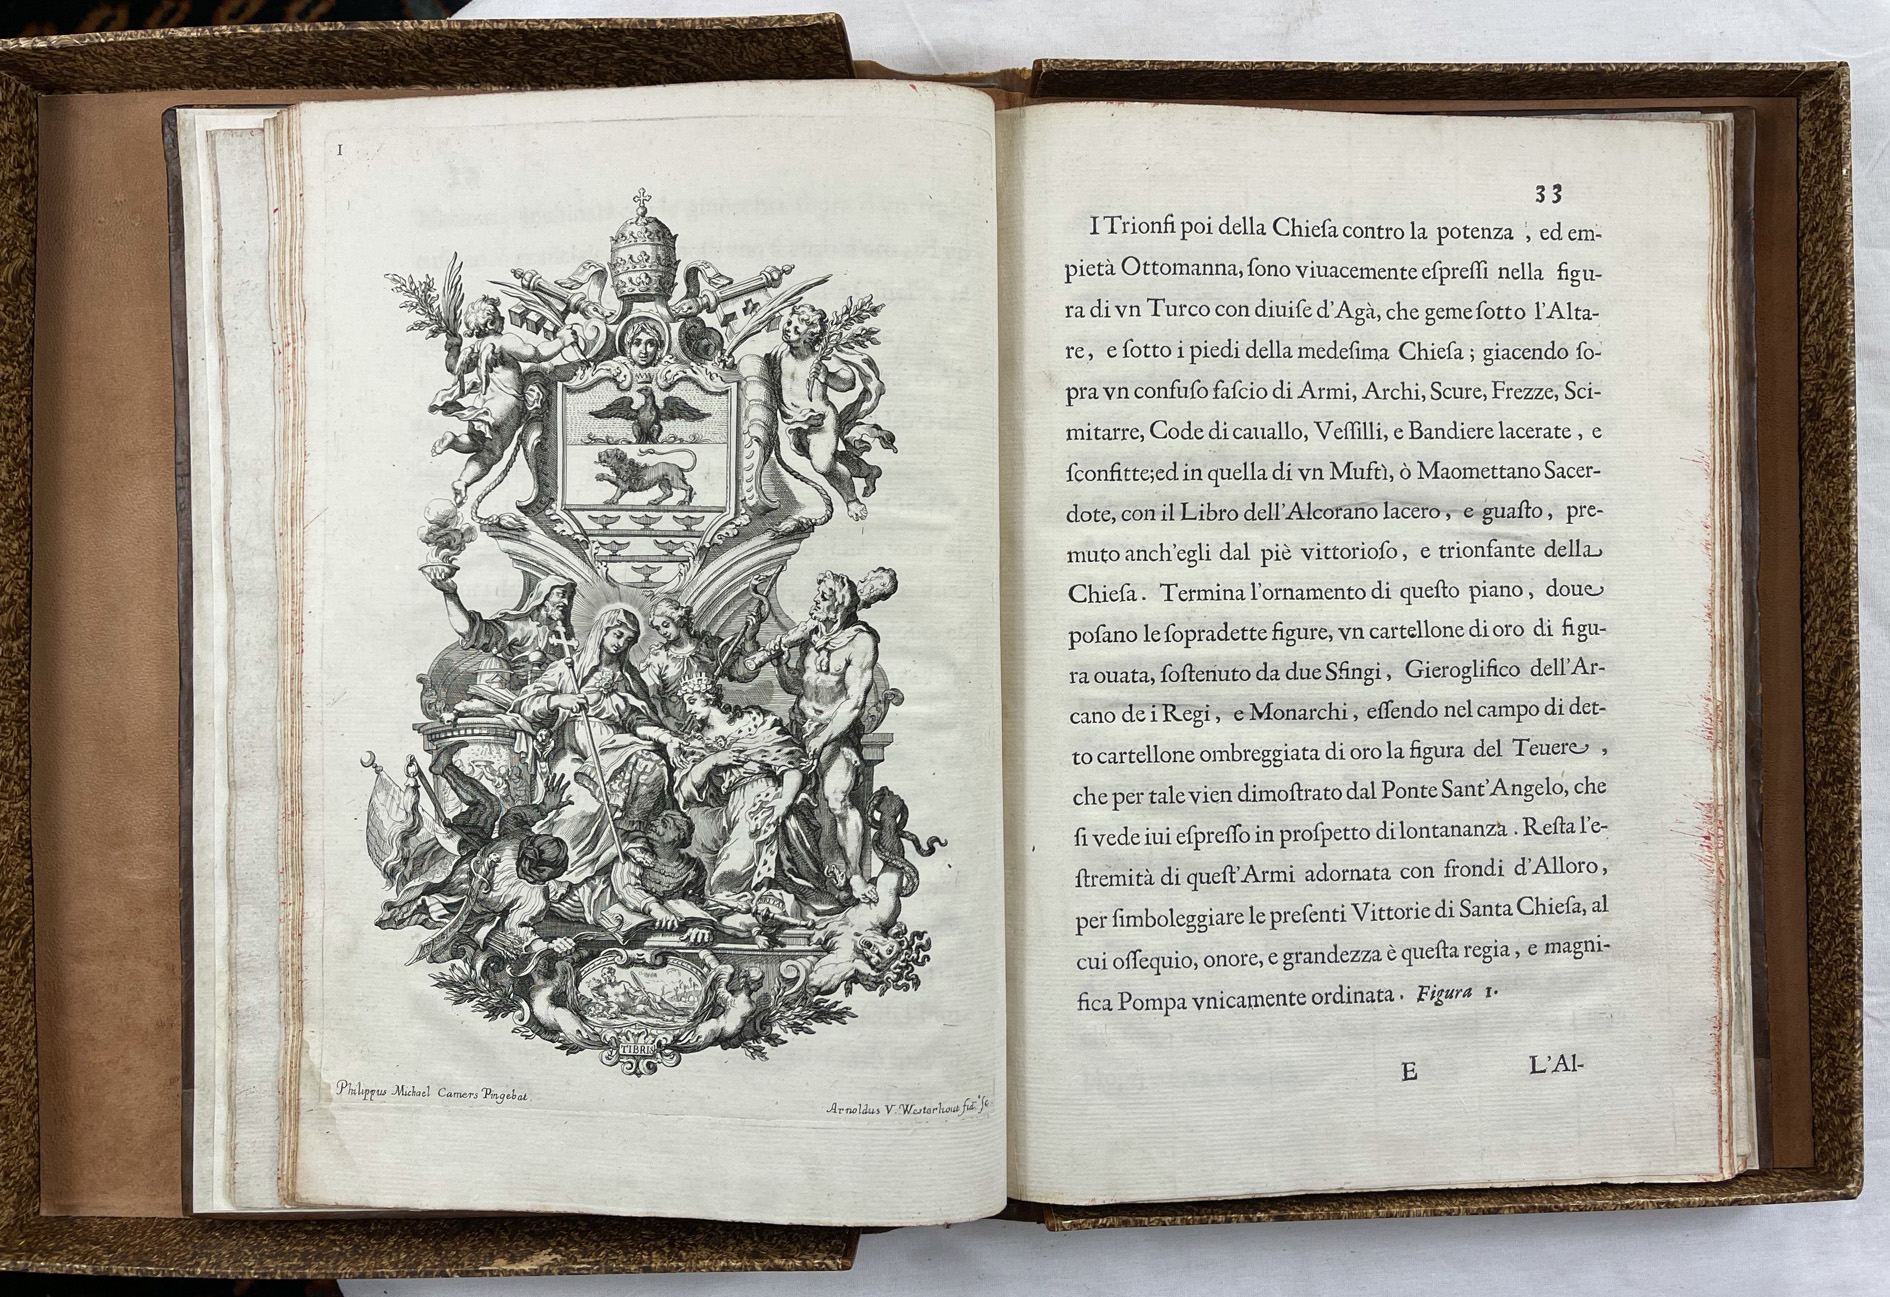 I
TIBRIS
Philippus Michael Camers Pingebat.
Arnoldus V. Westerhout
33
I Trionfi poi della Chieſa contro la potenza , ed em-
pietà Ottomanna, ſono viuacemente eſpreſſi nella figu-
ra di vn Turco con diuiſe d'Agà, che geme ſotto l'Alta-
re, e ſotto i piedi della medeſima Chieſa ; giacendo ſo-
pra vn confuſo faſcio di Armi, Archi, Scure, Frezze, Sci-
mitarre, Code di cauallo, Veſſilli, e Bandiere lacerate , e
ſconfitte;ed in quella di vn Muftì, ò Maomettano Sacer-
dote, con il Libro dell'Alcorano lacero , e guaſto , pre-
muto anch'egli dal piè vittorioſo , e trionfante della
Chieſa . Termina l'ornamento di queſto piano , doue
poſano le ſopradette figure, vn cartellone di oro di figu-
ra ouata, ſoſtenuto da due Sfingi , Gieroglifico dell'Ar-
cano de i Regi , e Monarchi , eſſendo nel campo di det-
to cartellone ombreggiata di oro la figura del Teuere ,
che per tale vien dimoſtrato dal Ponte Sant'Angelo, che
ſi vede iui eſpreſſo in proſpetto di lontananza . Reſta l'e-
ſtremità di queſt'Armi adornata con frondi d'Alloro ,
per ſimboleggiare le preſenti Vittorie di Santa Chieſa, al
cui oſſequio, onore, e grandezza è queſta regia , e magni-
fica Pompa vnicamente ordinata . Figura 1.
E L'Al-